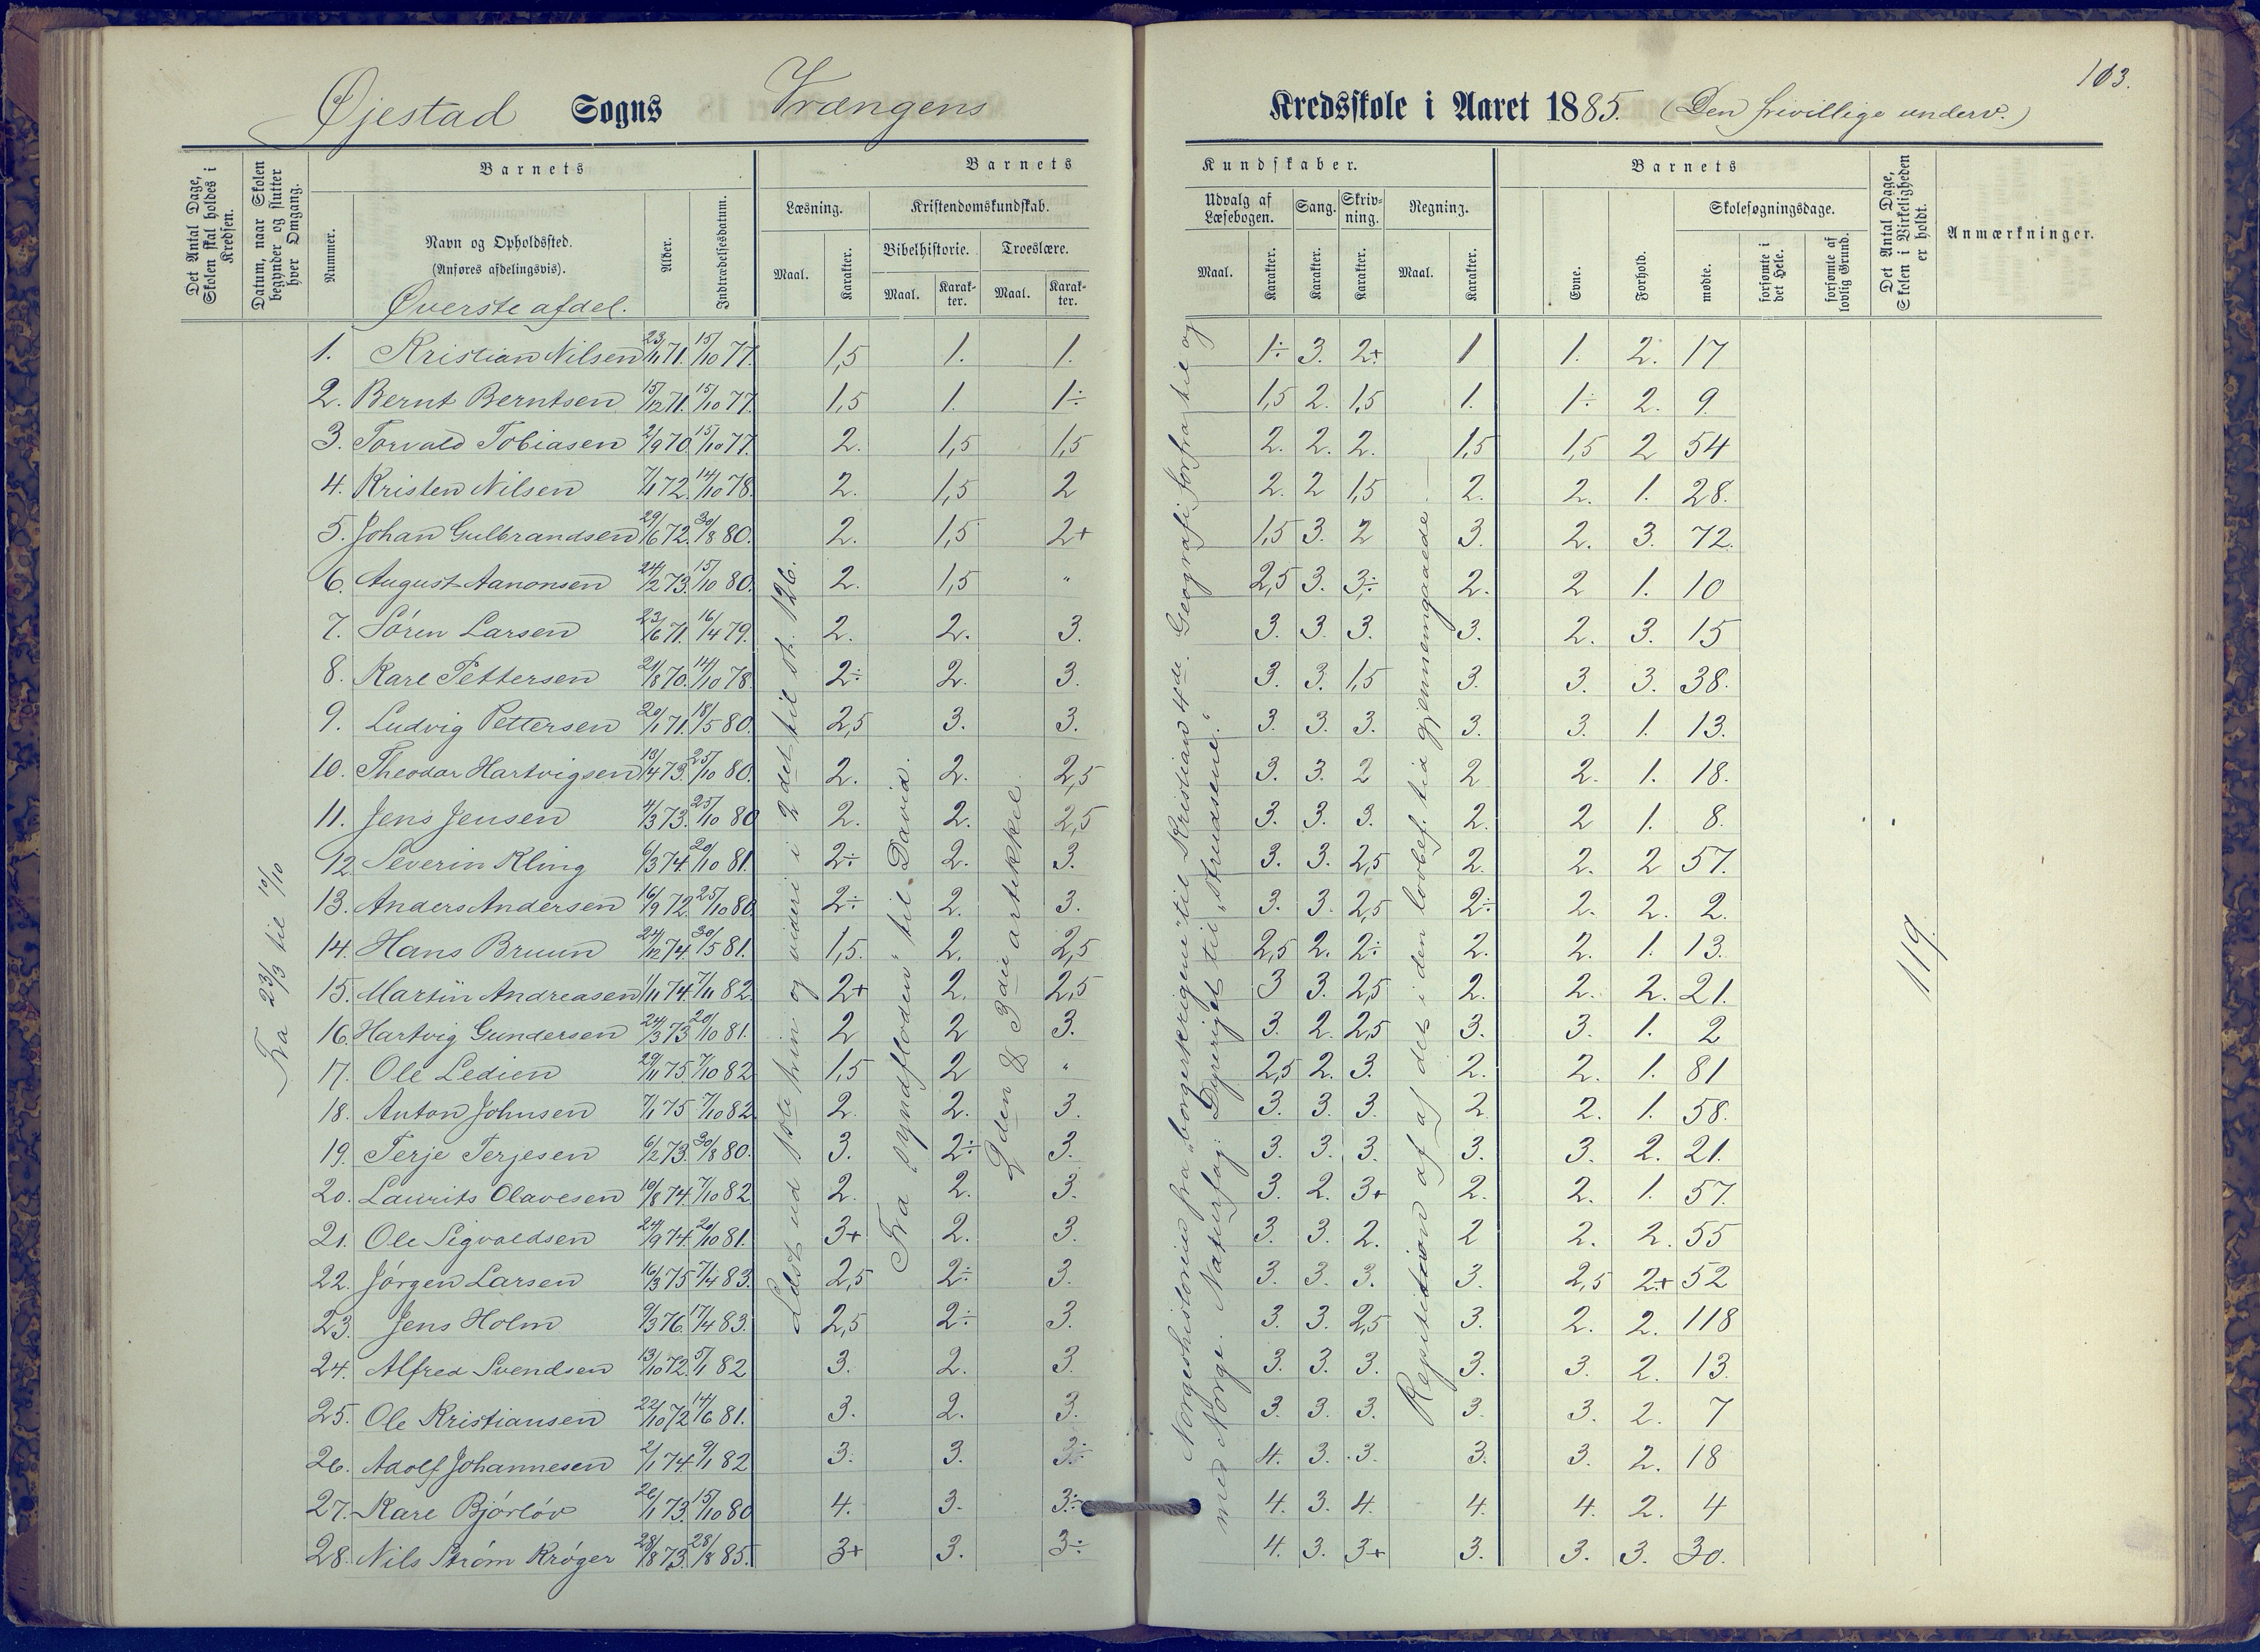 103.
Øjestad Sogns Vrængens Kredsskole i Aaret 1885. (Den frivillige underv.)
Det Antal Dage, Skolen skal holdes i Kredsen.
Datum, naar Skolen begynder og slutter hver Omgang.
Barnets
Nummer.
Navn og Opholdssted.
(Anføres afdelingsvis).
Øverste afdel.
Alder.
Indtrædelsesdatum.
Barnets Kundskaber.
Læsning.
Maal. Karakter.
Kristendomskundskab.
Bibelhistorie. Troeslære.
Maal. Karakter. Maal. Karakter.
Udvalg af Læsebogen. Sang. Skrivning. Regning.
Maal. Karakter. Karakter. Karakter. Maal. Karakter.
Barnets
Evne. Forhold.
Skolesøgningsdage.
mødte. forsømte i det Hele. forsømte af lovlig Grund.
Det Antal Dage, Skolen i Virkeligheden er holdt.
Anmærkninger.
1. Kristian Nilsen 23/11 71. 15/10 77. 1,5 1. 1. 1÷ 3. 2+ 1 1. 2. 17
2. Bernt Berntsen 15/12 71. 15/10 77. 1,5 1. 1÷ 1,5 2. 1,5 1. 1÷ 2. 9.
3. Torvald Tobiasen 2/9 70. 15/10 77. 2. 1,5 1,5 2. 2. 2. 1,5 1,5 2 54
4. Kristen Nilsen 7/1 72. 14/10 78. 2. 1,5 2 2. 2 1,5 2. 2. 1. 28.
5. Johan Gulbrandsen 29/6 72. 30/8 80. 2. 1,5 2+ 1,5 3. 2 3. 2. 3. 72.
6. August Aanonsen 24/2 73. 15/10 80. 2. 1,5 " 2,5 3. 3÷ 2. 2 1. 10
7. Sören Larsen 23/6 71. 16/4 79. 2. 2. 3. 3. 3. 3. 3. 2. 3. 15
8. Karl Pettersen 21/8 70. 14/10 78. 2÷ 2. 3. 3. 3. 1,5 3. 3. 3. 38.
9. Ludvig Pettersen 20/1 71. 18/5 80. 2,5 3. 3. 3. 3. 3. 3. 3. 1. 13.
10. Theodor Hartvigsen 13/4 73. 25/10 80. 2. 2. 2,5 3. 3. 2 2 2. 1. 18.
11. Jens Jensen 4/3 73. 25/10 80 2. 2. 2,5 3. 3. 3. 2. 2 1. 8.
12. Severin Kling 6/3 74. 20/10 81. 2÷ 2. 3. 3. 3. 2,5 2. 2. 2 57.
13. Anders Andersen 16/9 72. 25/10 80. 2÷ 2. 3. 3. 3. 2,5 2÷ 2. 2. 2.
14. Hans Bruun 24/12 74. 30/5 81. 1,5. 2. 2,5 2,5 2. 2÷ 2. 2. 1. 13.
15. Martin Andreasen 1/11 74. 7/11 82. 2+ 2. 2,5 3 3. 2,5 2. 2. 2. 21.
16. Hartvig Gundersen 24/3 73. 20/10 81. 2 2 3. 3. 2. 2,5 3. 3. 1. 2
17. Ole Ledien 29/11 75. 7/10 82. 1,5 2 " 2,5 2. 3. 2. 2. 1. 81
18. Anton Johnsen 7/1 75 7/10 82. 2. 2. 3. 3. 3. 3. 2. 2. 1. 58.
19. Terje Terjesen 6/2 73. 30/8 80. 3. 2÷ 3. 3. 3. 3. 3. 3. 2. 21.
20. Laurits Olavesen 10/8 74. 7/10 82. 2. 2. 3. 3. 2. 3+ 2. 2. 1. 57.
21. Ole Sigvaldsen 24/9 74. 20/10 81. 3+ 2. 3. 3. 3. 2. 2 2. 2. 55
22. Jörgen Larsen 16/3 75 7/4 83. 2,5 2÷ 3. 3. 3. 3. 3. 2,5 2+ 52
23. Jens Holm 9/3 76. 17/4 83. 2,5 2÷ 3. 3. 3. 2,5 3. 2. 2. 118
24. Alfred Svendsen 13/10 72. 5/1 82 3. 2. 3. 3. 3. 3. 3. 3. 2. 13.
25. Ole Kristiansen 22/10 72 14/6 81. 3. 2. 3. 3. 3. 3. 3. 3. 2. 7
26. Adolf Johannesen 2/1 74. 9/1 82 3. 3. 3÷ 4. 3. 3. 3. 3. 2. 18
27. Karl Bjórlöv 26/1 73. 15/10 80 4. 3. 3÷ 4. 3. 4. 4. 4. 2. 4
28. Nils Ström Kröger 28/8 73. 28/8 85. 3+ 3. 3÷ 4. 3. 3+ 3. 3. 3. 30.
Fra 23/3 til 10/10
Læst ud 1ste trin og videre i 2det til st. 126.
Fra "syndfloden" til David.
2den & 3die artikkel
Norgeshistorien fra "borgerkrigene" til Kristian 4de. Geografi forfra til og
med Norge. Naturfag: Dyreriget til "strudsene."
Repitition af af det i den lovbef. tid gjennemgaaede.
119.